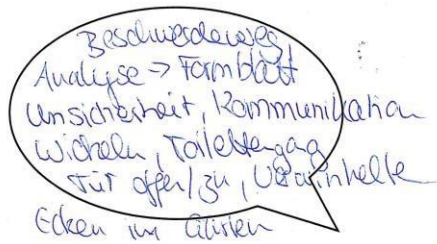 Beschwerdeweg
Analyse -> Formblatt
Unsicherheit, Kommunikation
Wickeln, Toilettengang
Tür offen/zu,
Ecken im